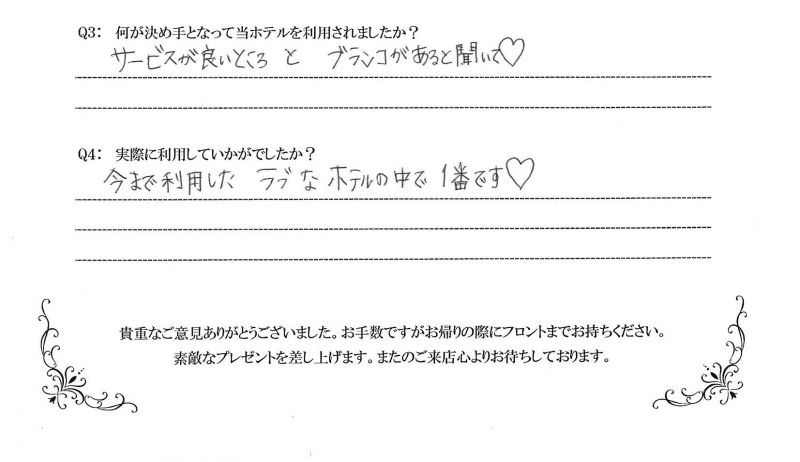 Q3： 何が決め手となって当ホテルを利用されましたか？
サービスが良いところ と ブランコがあると聞いて♡
Q4： 実際に利用していかがでしたか？
今まで利用した ラブな ホテルの中で 1番です♡
貴重なご意見ありがとうございました。お手数ですがお帰りの際にフロントまでお持ちください。
素敵なプレゼントを差し上げます。またのご来店心よりお待ちしております。